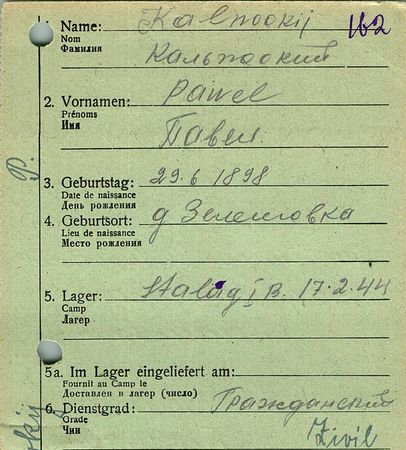 1. Name: Kalnookij 162
Nom
Фамилия
Кальноокий
2. Vornamen: Pawel
Prénoms
Имя
Павел.
3. Geburtstag: 29.6 1898
Date de naissance
День рождения
4. Geburtsort: д Зеленовка
Lieu de naissance
Место рождения
5. Lager: Stalag I B. 17.2.44
Camp
Лагер
5a. Im Lager eingeliefert am:
Fournit au Camp le
Доставлен в лагер (число)
6. Dienstgrad: Гражданский
Grade
Чин
Zivil
P.